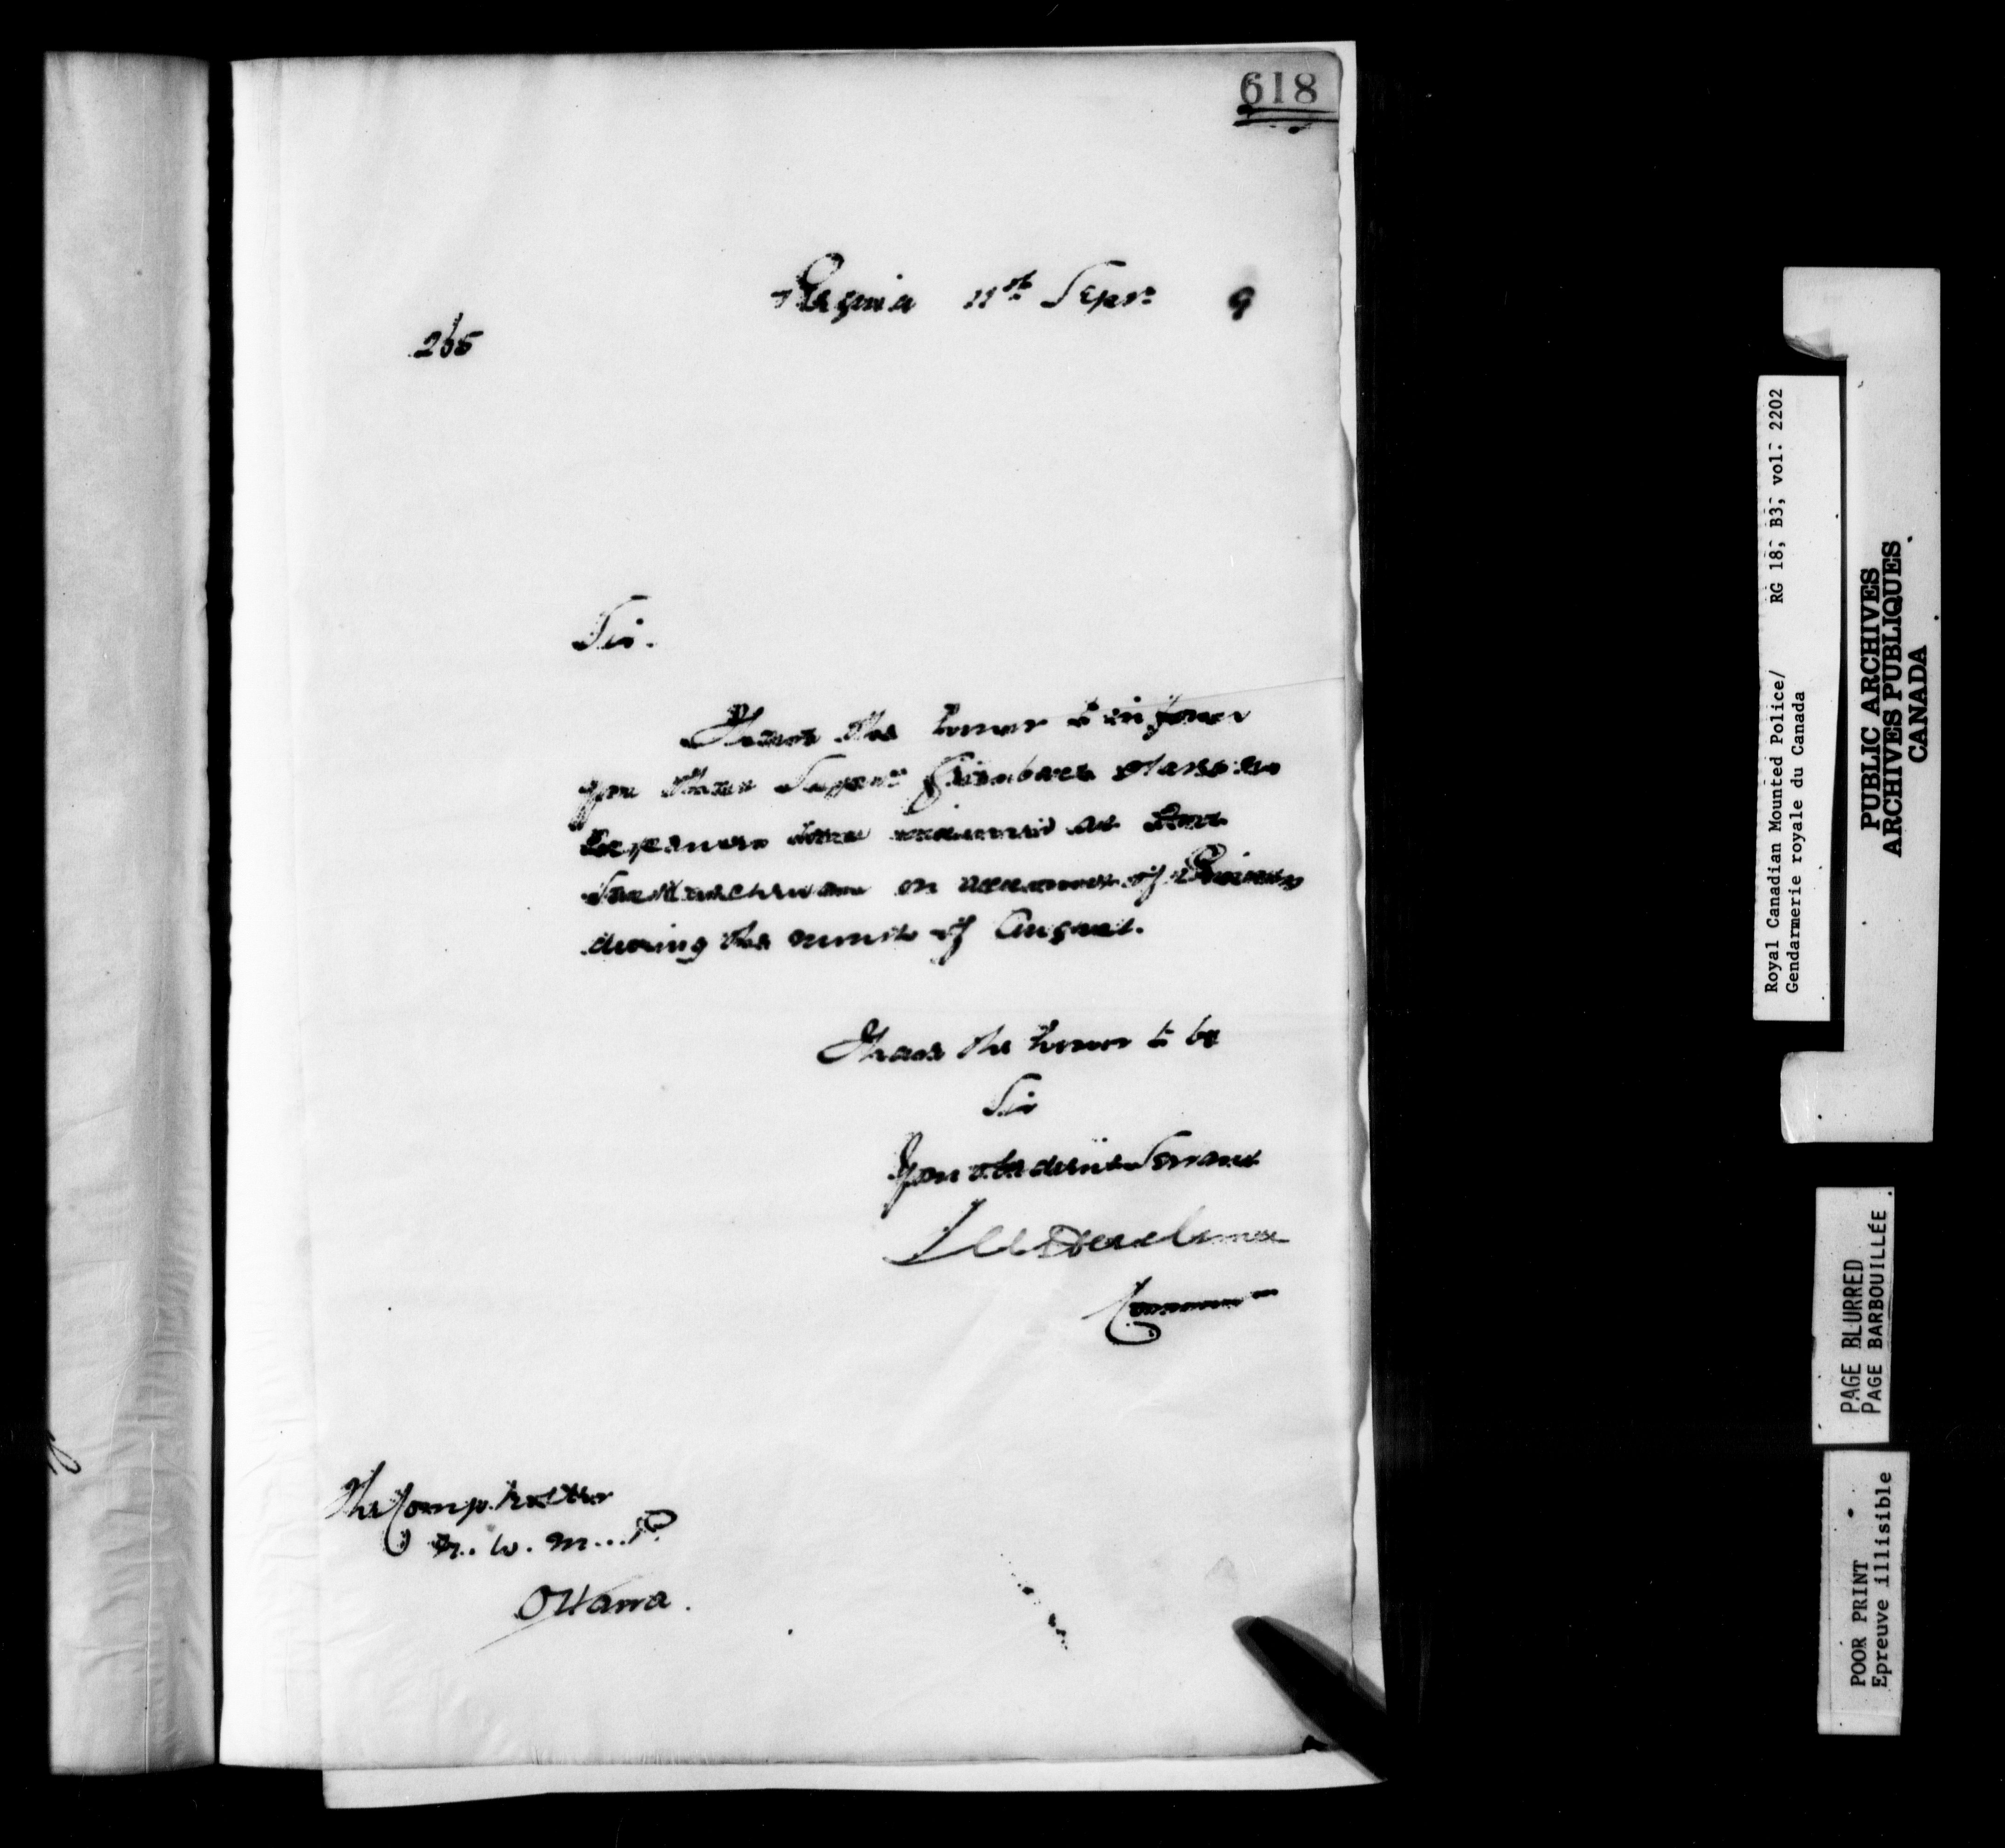 618
Regina 11th Sepr. 9
265
Sir.
I have the honor to inform
you that Supt. Griesbach states no
expenses were incurred at Fort
Saskatchewan on account of Prisoners
during the month of August.
I have the honor to be
Sir
Your obedient Servant
L W Herchmer
Commr
The Comptroller
N. W. M. P.
Ottawa.
Royal Canadian Mounted Police/ RG 18, B3, vol. 2202
Gendarmerie royale du Canada
PUBLIC ARCHIVES
ARCHIVES PUBLIQUES
CANADA
PAGE BLURRED
PAGE BARBOUILLÉE
POOR PRINT
Epreuve illisible